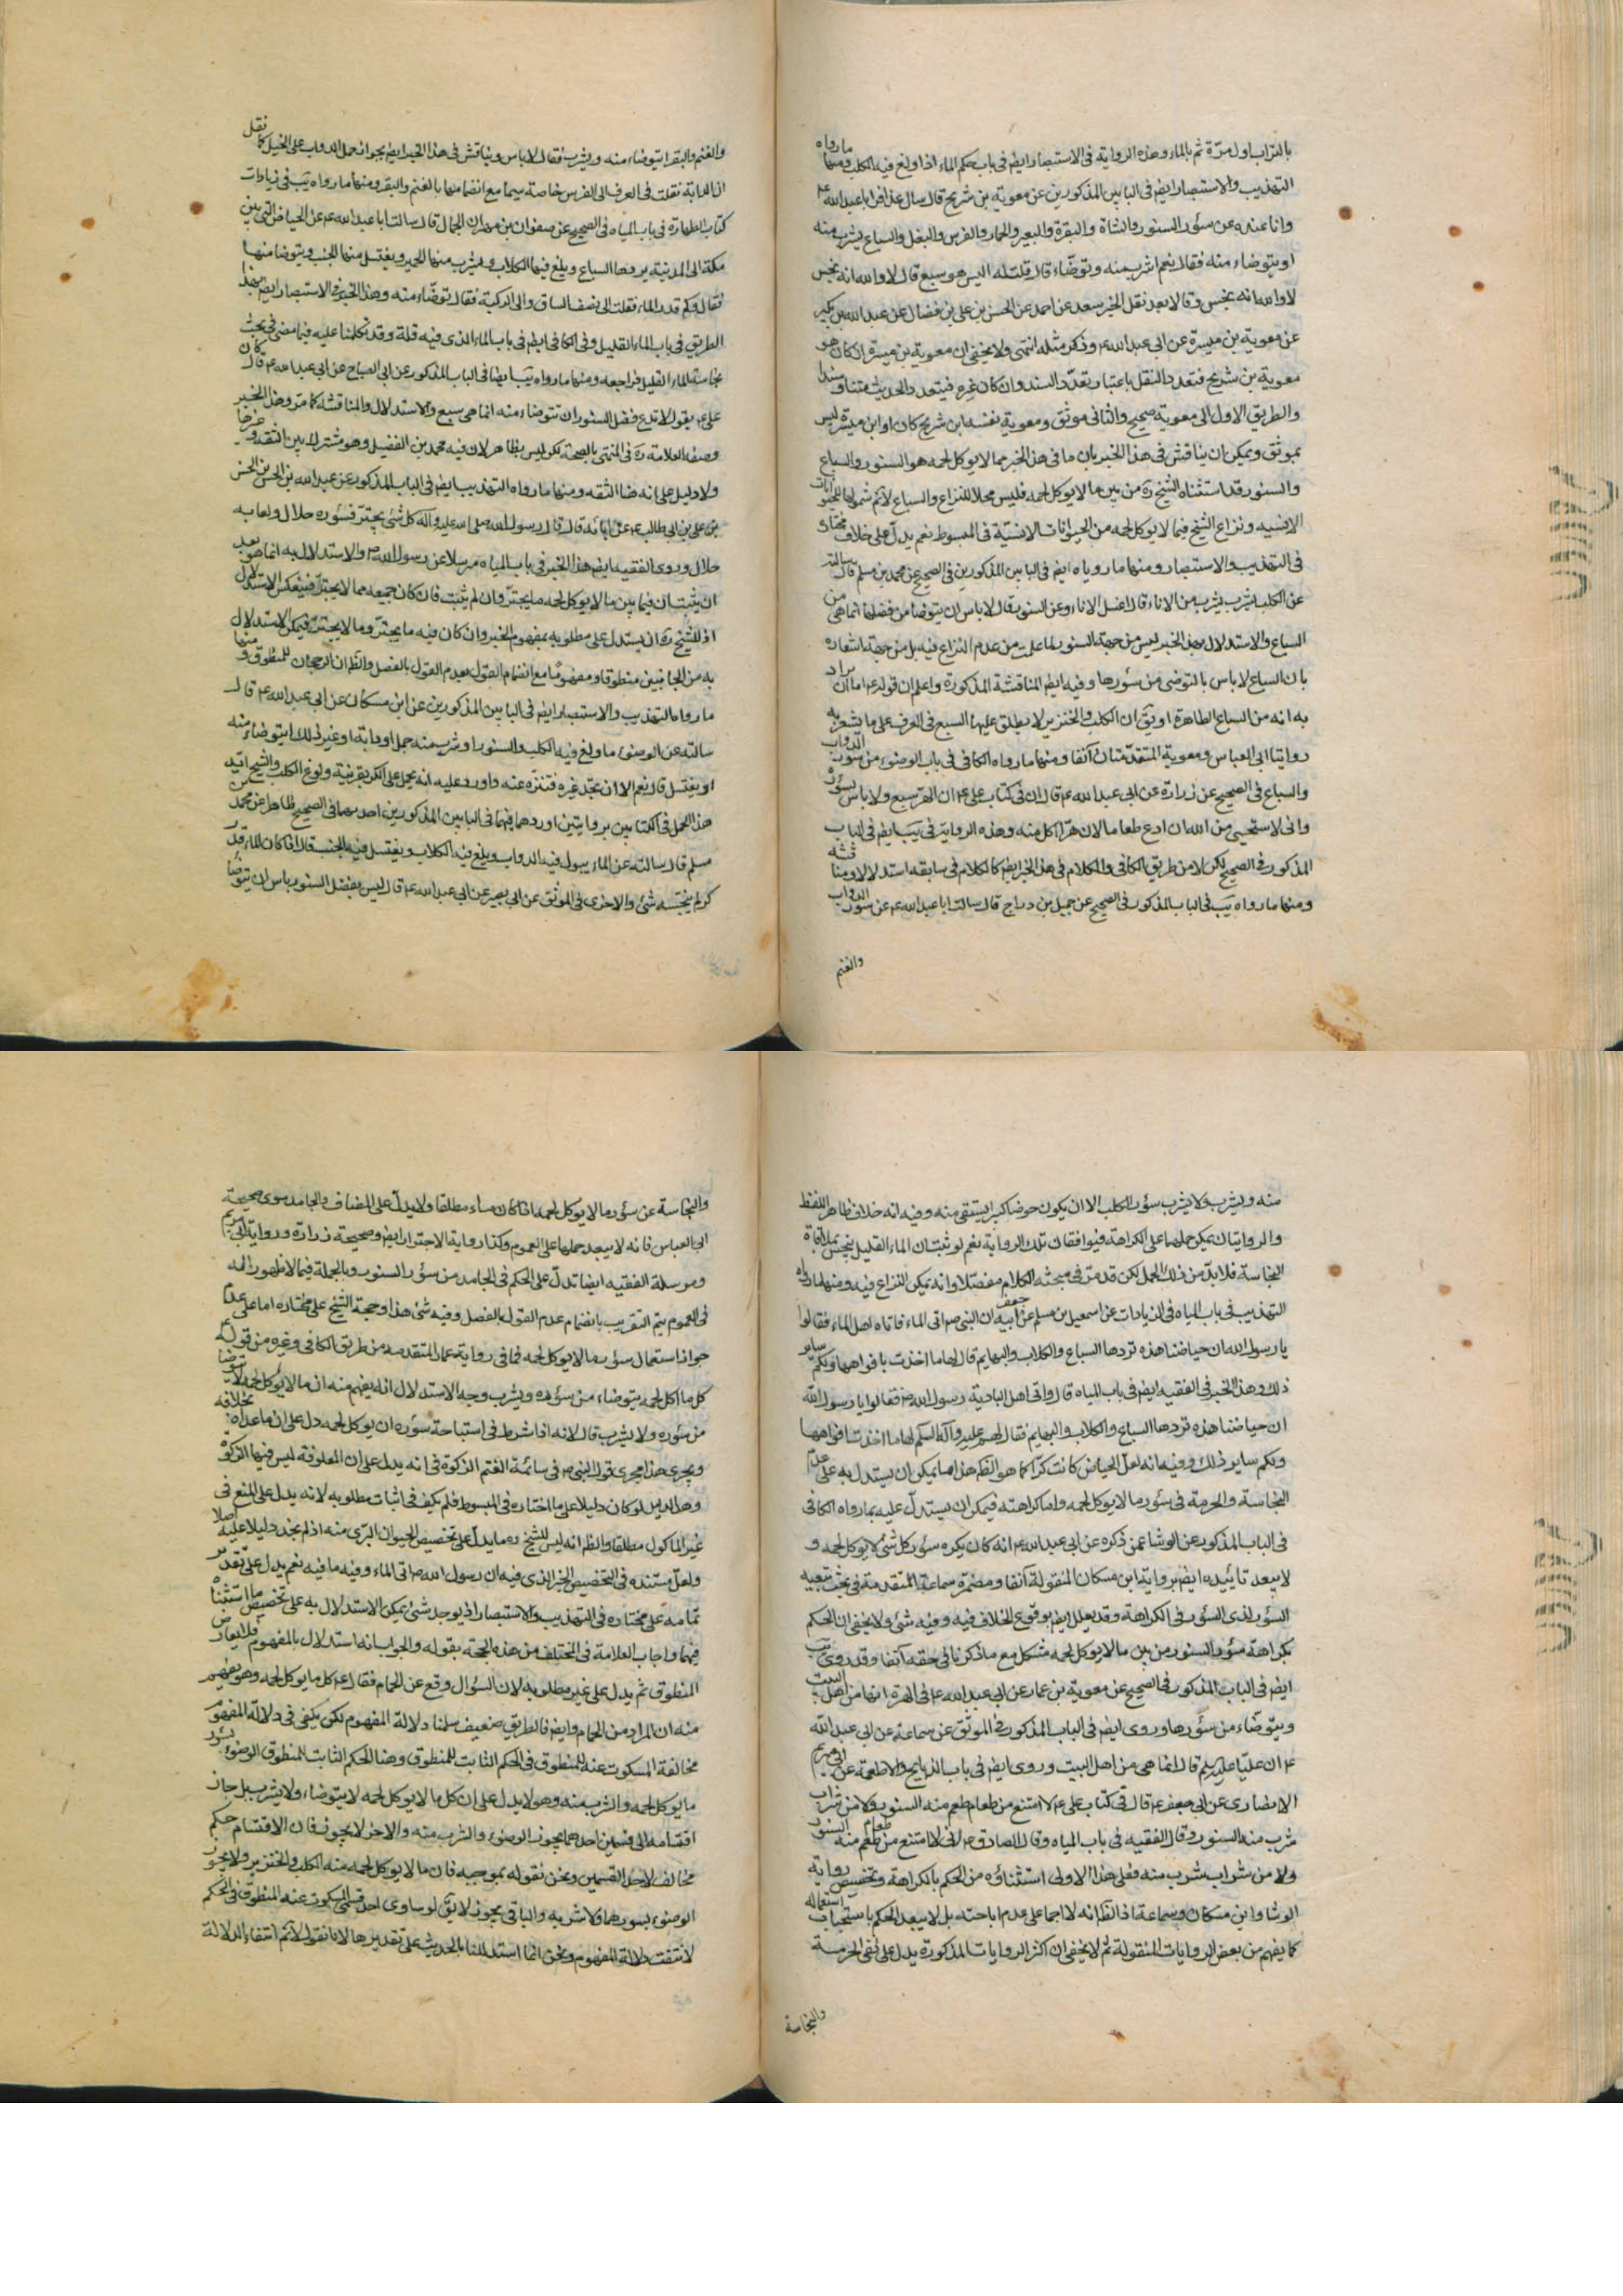 بالتراب اول مرة ثم بالماء وهذه الرواية فى الاستبصار ايضا فى باب حكم الماء اذا ولغ فيه الكلب ومنها مارواه
التهذيب والاستبصار ايضا فى البابين المذكورين عن معوية بن شريح قال سال عذافر ابا عبد الله ع
وانا عنده عن سؤر السنور والشاة والبقرة والبعير والحمار والفرس والبغل والسباع يشرب منه
او يتوضاء منه فقال نعم اشرب منه وتوضاء قال قلت له الكلب قال لا قلت اليس هو سبع قال لا والله انه نجس
لا والله انه نجس وقالا بعد نقل الخبر سعد عن احمد عن الحسن بن على بن فضال عن عبد الله بن بكير
عن معوية بن ميسرة عن ابى عبد الله ع وذكر مثله انتهى ولا يخفى ان معوية بن ميسرة ان كان هو
معوية بن شريح فتعدد النقل باعتبار تعدد السند وان كان غيره فيتعدد الحديث متنا وسندا
والطريق الاول الى معوية صحيح والثانى موثق ومعوية نفسه ابن شريح كان او ابن ميسرة ليس
بموثق ويمكن ان يناقش فى هذا الخبر بان ما فى هذا الخبر مما لا يوكل لحمه هو السنور والسباع
والسنور قد استثناه الشيخ ره من بين ما لا يوكل لحمه فليس محلا للنزاع والسباع لا نم شمولها للحيوانات
الانسية ونزاع الشيخ فيما لا يوكل لحمه من الحيوانات الانسية فى المبسوط نعم يدل على خلاف مختاره
فى التهذيب والاستبصار ومنها ما روياه ايضا فى البابين المذكورين فى الصحيح عن محمد بن مسلم قال سالته
عن الكلب يشرب من الاناء قال اغسل الاناء وعن السنور قال لا باس ان يتوضا من فضلها انما هى من
السباع والاستدلال بهذا الخبر ليس من جهة السنور لما علمت من عدم النزاع فيه بل من جهة اشعاره
بان السباع لا باس بالتوضى من سؤرها وفيه ايضا المناقشة المذكورة واعلم ان قوله ع اما ان يراد
به انه من السباع الطاهرة او يق ان الكلب والخنزير لا يطلق عليها السبع فى العرف على ما يشعر به
روايتا ابى العباس ومعوية المتقدمتان آنفا ومنها مارواه الكافى فى باب الوضوء من سؤر الدواب
والسباع فى الصحيح عن زرارة عن ابى عبد الله ع قال ان فى كتاب على ع ان الهر سبع ولا باس بسؤره
وانى لاستحيى من الله ان ادع طعاما لان هرا اكل منه وهذه الرواية فى يب ايضا فى الباب
المذكور فى الصحيح لكن لا من طريق الكافى والكلام فى هذا الخبر ايضا كالكلام فى سابقه استدلالا ومناقشة
ومنها مارواه يب فى الباب المذكور فى الصحيح عن جميل بن دراج قال سالت ابا عبد الله ع عن سؤر الدواب
والغنم
والغنم والبقر ايتوضاء منه ويشرب فقال لا باس ويناقش فى هذا الخبر ايضا بجواز حمل الدواب على الخيل كما نقل
ان الدابة نقلت فى العرف الى الفرس خاصة سيما مع انضمامها بالغنم والبقر ومنها مارواه يب فى زيادات
كتاب الطهارة فى باب المياه فى الصحيح عن صفوان بن مهران الجمال قال سالت ابا عبد الله ع عن الحياض التى بين
مكة الى المدينة يردها السباع ويلغ فيها الكلاب ويشرب منها الحمير ويغتسل منها الجنب ويتوضا منها
فقال وكم قدر الماء فقلت الى نصف الساق والى الركبة فقال توضاء منه وهذا الخبر فى الاستبصار ايضا بهذا
الطريق فى باب الماء القليل وفى الكافى ايضا فى باب الماء الذى فيه قلة وقد تكلمنا عليه فيما مضى فى بحث
نجاسة الماء القليل فراجعه ومنها مارواه يب ايضا فى الباب المذكور عن ابى الصباح عن ابى عبد الله ع قال كان
على ع يقول لا تدع فضل السنور ان تتوضاء منه انما هى سبع والاستدلال والمناقشة كما مر وهذا الخبر
وصفه العلامة ره فى المنتهى بالصحة لكن ليس بظاهر لان فيه محمد بن الفضيل وهو مشترك بين الثقة وغيرها
ولا دليل على انه هنا الثقه ومنها مارواه التهذيب ايضا فى الباب المذكور عن عبد الله بن الحسن بن الحسن
بن على بن ابى طالب ع عن ابائه قال قال رسول الله صلى الله عليه وآله كل شئ يجتر فسؤره حلال ولعابه
حلال وروى الفقيه ايضا هذا الخبر فى باب المياه مرسلا عن رسول الله ص والاستدلال به انما هو بعد
ان يثبت ان فيما بين ما لا يوكل لحمه ما يجتر وان لم يثبت فان كان جميعه مما لا يجتر فينعكس الاستدلال
اذ للشيخ ره ان يستدل على مطلوبه بمفهوم الخبر وان كان فيه ما يجتر وما لا يجتر فيمكن الاستدلال
به من الجانبين منطوقا ومفهوما مع انضمام القول بعدم القول بالفصل والظ ان الرجحان للمنطوق ومنها
مارواه التهذيب والاستبصار ايضا فى البابين المذكورين عن ابن مسكان عن ابى عبد الله ع قال
سالته عن الوضوء مما ولغ فيه الكلب والسنور او شرب منه جمل او دابة او غير ذلك ايتوضاء منه
او يغتسل قال نعم الا ان تجد غيره فتنزه عنه واورد عليه انه يحمل على الكر بقرينة ولوغ الكلب والشيخ ايد
هذا الحمل فى الكتابين بروايتين اوردهما فيهما فى البابين المذكورين احديهما فى الصحيح ظاهرا عن محمد بن
مسلم قال سالته عن الماء يبول فيه الدواب ويلغ فيه الكلاب ويغتسل فيه الجنب قال اذا كان الماء قدر
كر لم ينجسه شئ والاخرى فى الموثق عن ابى بصير عن ابى عبد الله ع قال ليس بفضل السنور باس ان يتوضا
منه ويشرب ولا يشرب سؤر الكلب الا ان يكون حوضا كبيرا يستقى منه وفيه انه خلاف ظاهر اللفظ
والروايتان يمكن حملهما على الكراهة فتوافقان تلك الرواية نعم لو ثبت ان الماء القليل ينجس بملاقاة
النجاسة فلا بد من ذلك الحمل لكن قد مر فى مبحثه الكلام مفصلا وانه يمكن النزاع فيه ومنها مارواه
التهذيب فى باب المياه فى الزيادات عن اسمعيل بن مسلم عن جعفر عن ابيه ان النبى ص اتى الماء فاتاه اهل الماء فقالوا
يا رسول الله ان حياضنا هذه تردها السباع والكلاب والبهايم قال لها ما اخذت بافواهها ولكم ساير
ذلك وهذا الخبر فى الفقيه ايضا فى باب المياه قال واتى اهل البادية رسول الله ص فقالوا يا رسول الله
ان حياضنا هذه تردها السباع والكلاب والبهايم فقال لهم عليه وآله السلم لها ما اخذت افواهها
ولكم ساير ذلك وفيه انه لعل الحياض كانت كرا كما هو الظ هذا ما يمكن ان يستدل به على عدم
النجاسة والحرمة فى سؤر ما لا يوكل لحمه واما كراهته فيمكن ان يستدل عليه بما رواه الكافى
فى الباب المذكور عن الوشا عمن ذكره عن ابى عبد الله ع انه كان يكره سؤر كل شئ لا يوكل لحمه و
لا يبعد تاييده ايضا برواية ابن مسكان المنقولة آنفا ومضمرة سماعة المتقدمة فى بحث تبعية
السؤر لذى السؤر فى الكراهة وقد يعلل ايضا بوقوع الخلاف فيه وفيه شئ ولا يخفى ان الحكم
بكراهة سؤر السنور من بين ما لا يوكل لحمه مشكل مع ما ذكرنا فى حقه آنفا وقد روى يب
ايضا فى الباب المذكور فى الصحيح عن معوية بن عمار عن ابى عبد الله ع فى الهرة انها من اهل البيت
ويتوضاء من سؤرها وروى ايضا فى الباب المذكور فى الموثق عن سماعة عن ابى عبد الله
ع ان عليا عليه السلم قال انما هى من اهل البيت وروى ايضا فى باب الذبايح والاطعمة عن ابى مريم
الانصارى عن ابى جعفر ع قال فى كتاب على ع لا امتنع من طعام طعم منه السنور ولا من شراب
شرب منه السنور وقال الفقيه فى باب المياه وقال الصادق ع انى لا امتنع من طعام طعم منه السنور
ولا من شراب شرب منه فعلى هذا الاولى استثناؤه من الحكم بالكراهة وتخصيص رواية
الوشا وابن مسكان وسماعة اذ الظ انه لا اجماع على عدم اباحته بل لا يبعد الحكم باستحباب استعماله
كما يفهم من بعض الروايات المنقولة ثم لا يخفى ان اكثر الروايات المذكورة يدل على نفى الحرمة
والنجاسة
والنجاسة عن سؤر ما لا يوكل لحمه اذا كان ماء مطلقا ولا يدل على المضاف والجامد سوى صحيحة
ابى العباس فانه لا يبعد حملها على العموم وكذا رواية الاجترار ايضا وصحيحة زرارة ورواية ابى مريم
ومرسلة الفقيه ايضا تدل على الحكم فى الجامد من سؤر السنور وبالجملة فيما لا ظهور له
فى العموم يتم التقريب بانضمام عدم القول بالفصل وفيه شئ هذا وحجة الشيخ على مختاره اما على عدم
جواز استعمال سؤر ما لا يوكل لحمه فما فى رواية عمار المتقدمة من طريق الكافى وغيره من قوله ع
كل ما اكل لحمه يتوضاء من سؤره ويشرب وجه الاستدلال انه يفهم منه ان ما لا يوكل لحمه لا يتوضا
من سؤره ولا يشرب قال لانه اذا شرط فى استباحة سؤره ان يوكل لحمه دل على ان ما عداه بخلافه
ويجرى هذا مجرى قول النبى ص فى سائمة الغنم الزكوة فى انه يدل على ان المعلوفة ليس فيها الزكوة
وهذا الدليل لو كان دليلا على ما اختاره فى المبسوط فلم يكف فى اثبات مطلوبه لانه يدل على المنع فى
غير الماكول مطلقا والظ انه ليس للشيخ ره ما يدل على تخصيص الحيوان البرى منه اذ لم نجد دليلا عليه اصلا
ولعل مستنده فى التخصيص الخبر الذى فيه ان رسول الله ص اتى الماء وفيه ما فيه نعم يدل على تقدير
تمامه على مختاره فى التهذيب والاستبصار اذ يوجد شئ يمكن الاستدلال به على تخصيص ما استثناه
فيهما واجاب العلامة فى المختلف من هذه الحجة بقوله والجواب انه استدلال بالمفهوم فلا يعارض
المنطوق ثم يدل على غير مطلوبه لان السؤال وقع عن الحمام فقال ع كل ما يوكل لحمه وهو يفهم
منه ان المراد من الحمام وايضا فالطريق ضعيف سلمنا دلالة المفهوم لكن يكفى فى دلالة المفهوم
مخالفة المسكوت عنه للمنطوق فى الحكم الثابت للمنطوق وهنا الحكم الثابت للمنطوق الوضوء بسؤر
ما يوكل لحمه والشرب منه وهو لا يدل على ان كل ما لا يوكل لحمه لا يتوضاء ولا يشرب بل جاز
اقتسامه الى قسمين احدهما يجوز الوضوء والشرب منه والاخر لا يجوز فان الاقتسام حكم
مخالف لاحد القسمين ونحن نقول بموجبه فان ما لا يوكل لحمه منه الكلب والخنزير ولا يجوز
الوضوء بسورهما ولا شربه والباقى يجوز لا يق لو ساوى احد قسمى المسكوت عنه المنطوق فى الحكم
لانتفت دلالة المفهوم ونحن انما استدللنا بالحديث على تقديرها لانا نقول لا نم انتفاء الدلالة